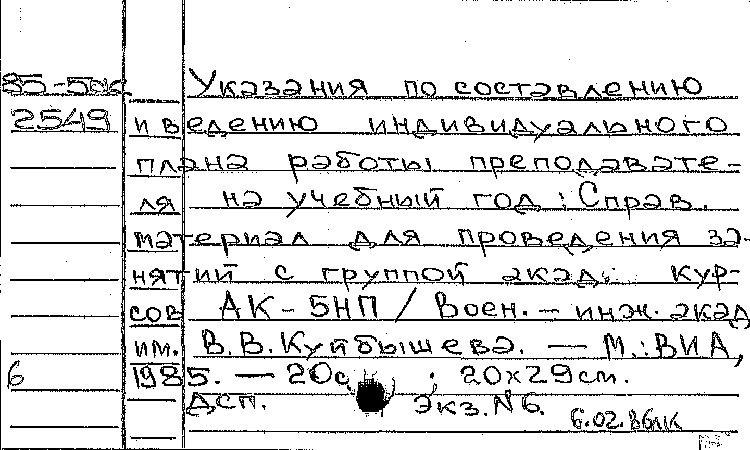 85-5дск Указания по составлению
2549 и ведению индивидуального
плана работы преподавате-
ля на учебный год : Справ.
материал для проведения за-
нятий с группой акад. кур-
сов АК-5НП / Воен.-инж. акад
им. В.В.Куйбышева. — М.: ВИА,
6 1985. — 20с ; 20х29см.
ДСП. Экз.N6.
6.02.86